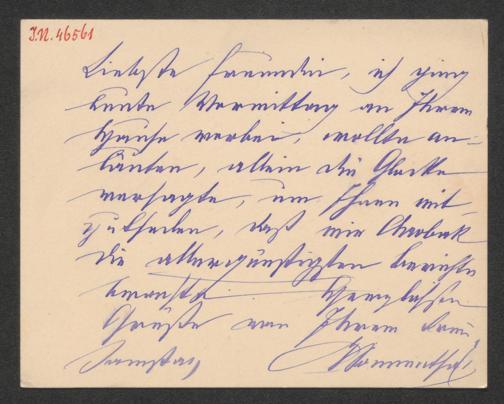 I.N. 46561
Liebste Freundin, ich ging
heute Vormittag an Ihrem
Hause vorbei, wollte an-
läuten, allein die Glocke
versagte, um Ihnen mit-
zutheilen, daß mir
die allergünstigsten Berichte
Herzlichsten
Grüße von Ihrem
Samstag